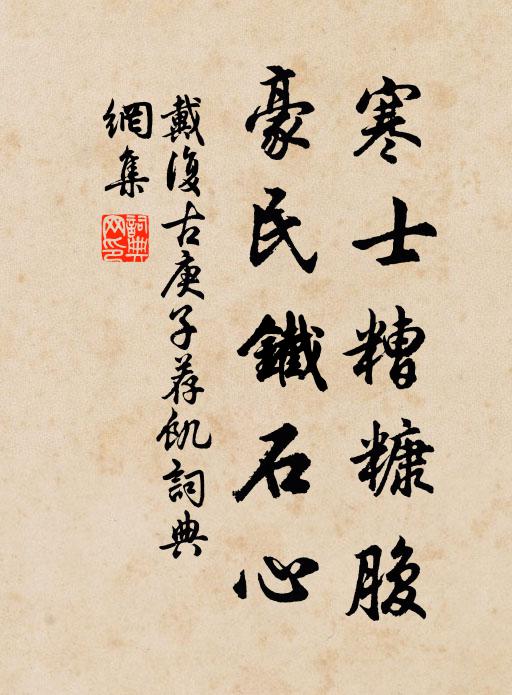 寒士糟糠腹
豪民鐵石心
戴復古庚子荐飢詞典
網集
詞典網印